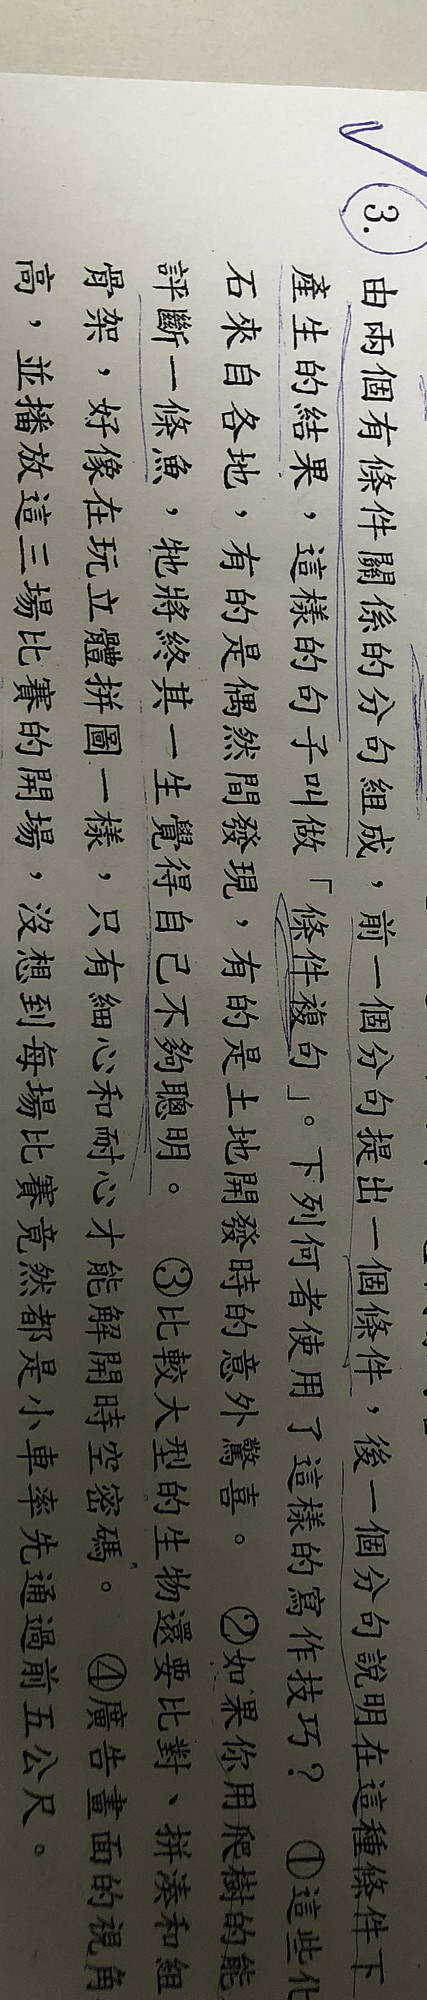 3. 由兩個有條件關係的分句組成，前一個分句提出一個條件，後一個分句說明在這種條件下
產生的結果，這樣的句子叫做「條件複句」。下列何者使用了這樣的寫作技巧？ ①這些化
石來自各地，有的是偶然間發現，有的是土地開發時的意外驚喜。 ②如果你用爬樹的能
評斷一條魚，牠將終其一生覺得自己不夠聰明。 ③比較大型的生物還要比對、拼湊和組
骨架，好像在玩立體拼圖一樣，只有細心和耐心才能解開時空密碼。 ④廣告畫面的視角
高，並播放這三場比賽的開場，沒想到每場比賽竟然都是小車率先通過前五公尺。